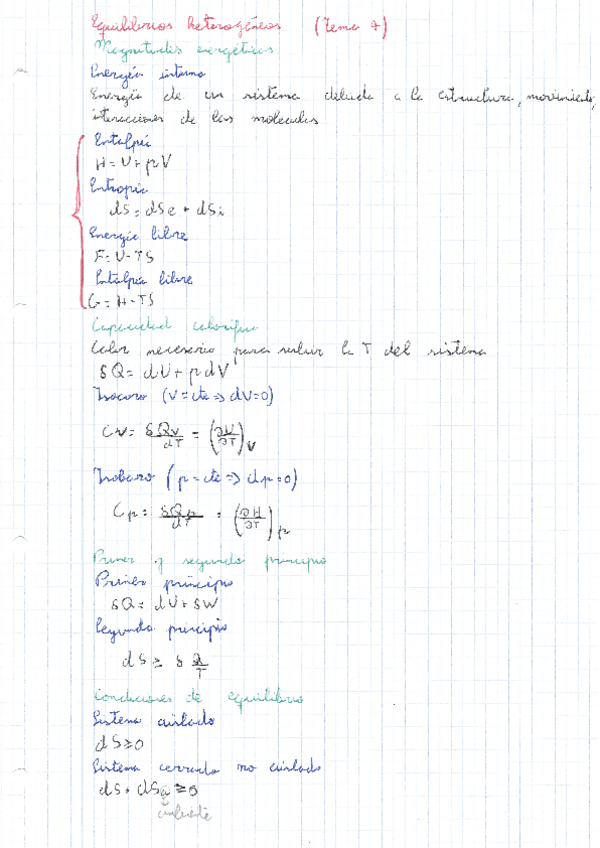 Equilibrios heterogéneos (Tema 4)
Magnitudes energéticas
Energía interna
Energía de un sistema debida a la estructura, movimiento,
iteracciones de las moleculas
Entalpía
H = U + pV
Entropía
dS = dSe + dSi
Energía libre
F = U - TS
Entalpía libre
G = H - TS
Capacidad calorífica
Calor necesario para subir la T del sistema
δQ = dU + pdV
Isocoro (V = cte => dV=0)
Cv = δQv/dT = (∂U/∂T)v
Isobaro (p = cte => dp=0)
Cp = δQp/dT = (∂H/∂T)p
Primer y segundo principio
Primer principio
δQ = dU + δW
Segundo principio
dS ≥ δ Q/T
Condiciones de equilibrio
Sistema aislado
dS ≥ 0
Sistema cerrado no aislado
dS + dSa ≥ 0
ambiente